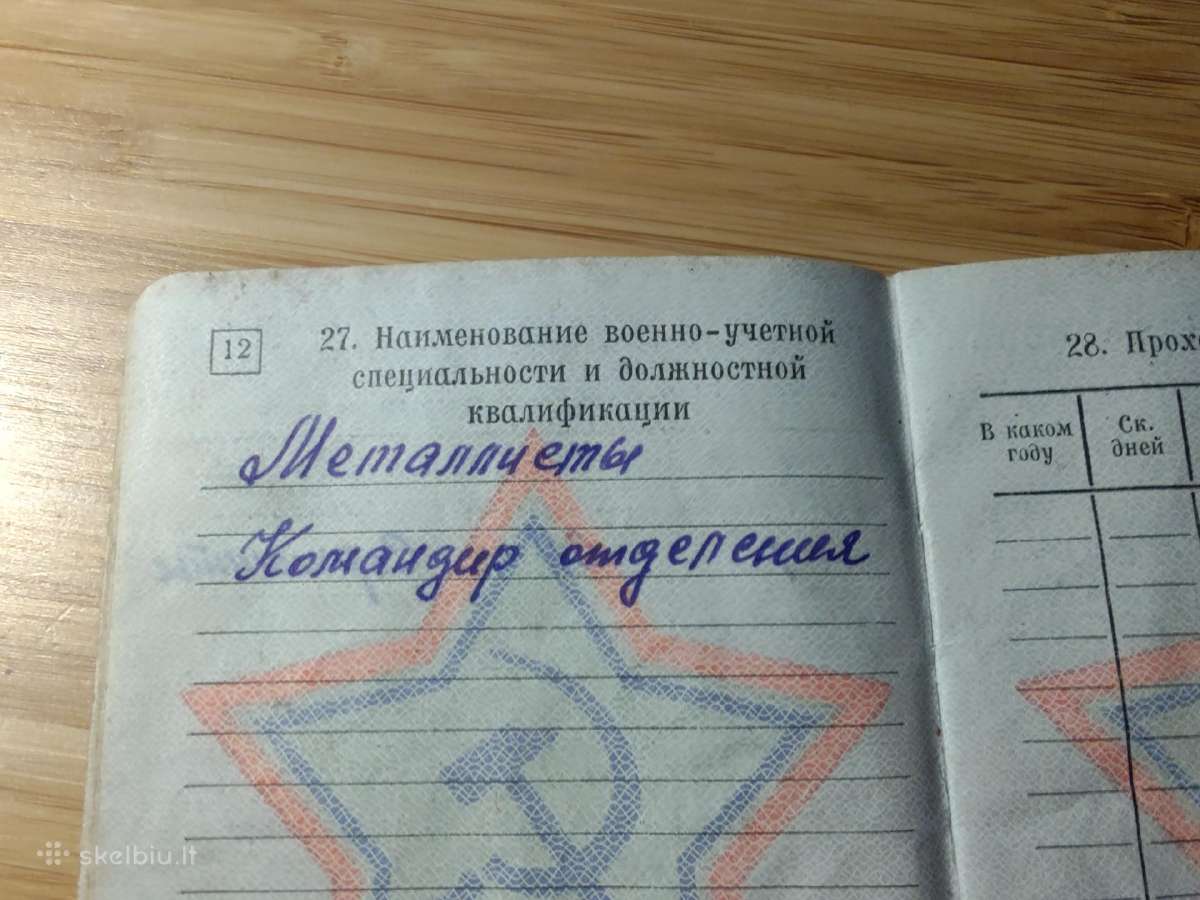 12
27. Наименование военно-учетной
специальности и должностной
квалификации
Металлисты
Командир отделения
28. Прох
В каком
году
Ск.
дней
skelbiu.lt